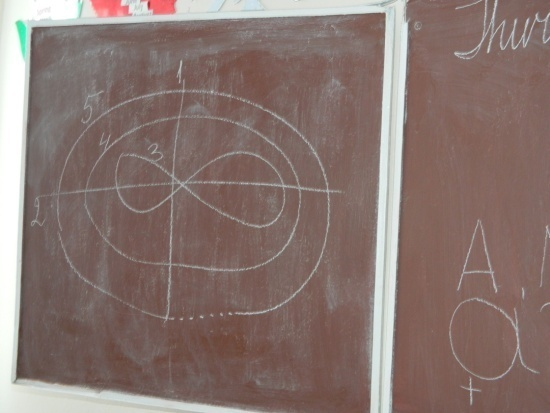 1
5
4
3
2
Thur
A,
a
+